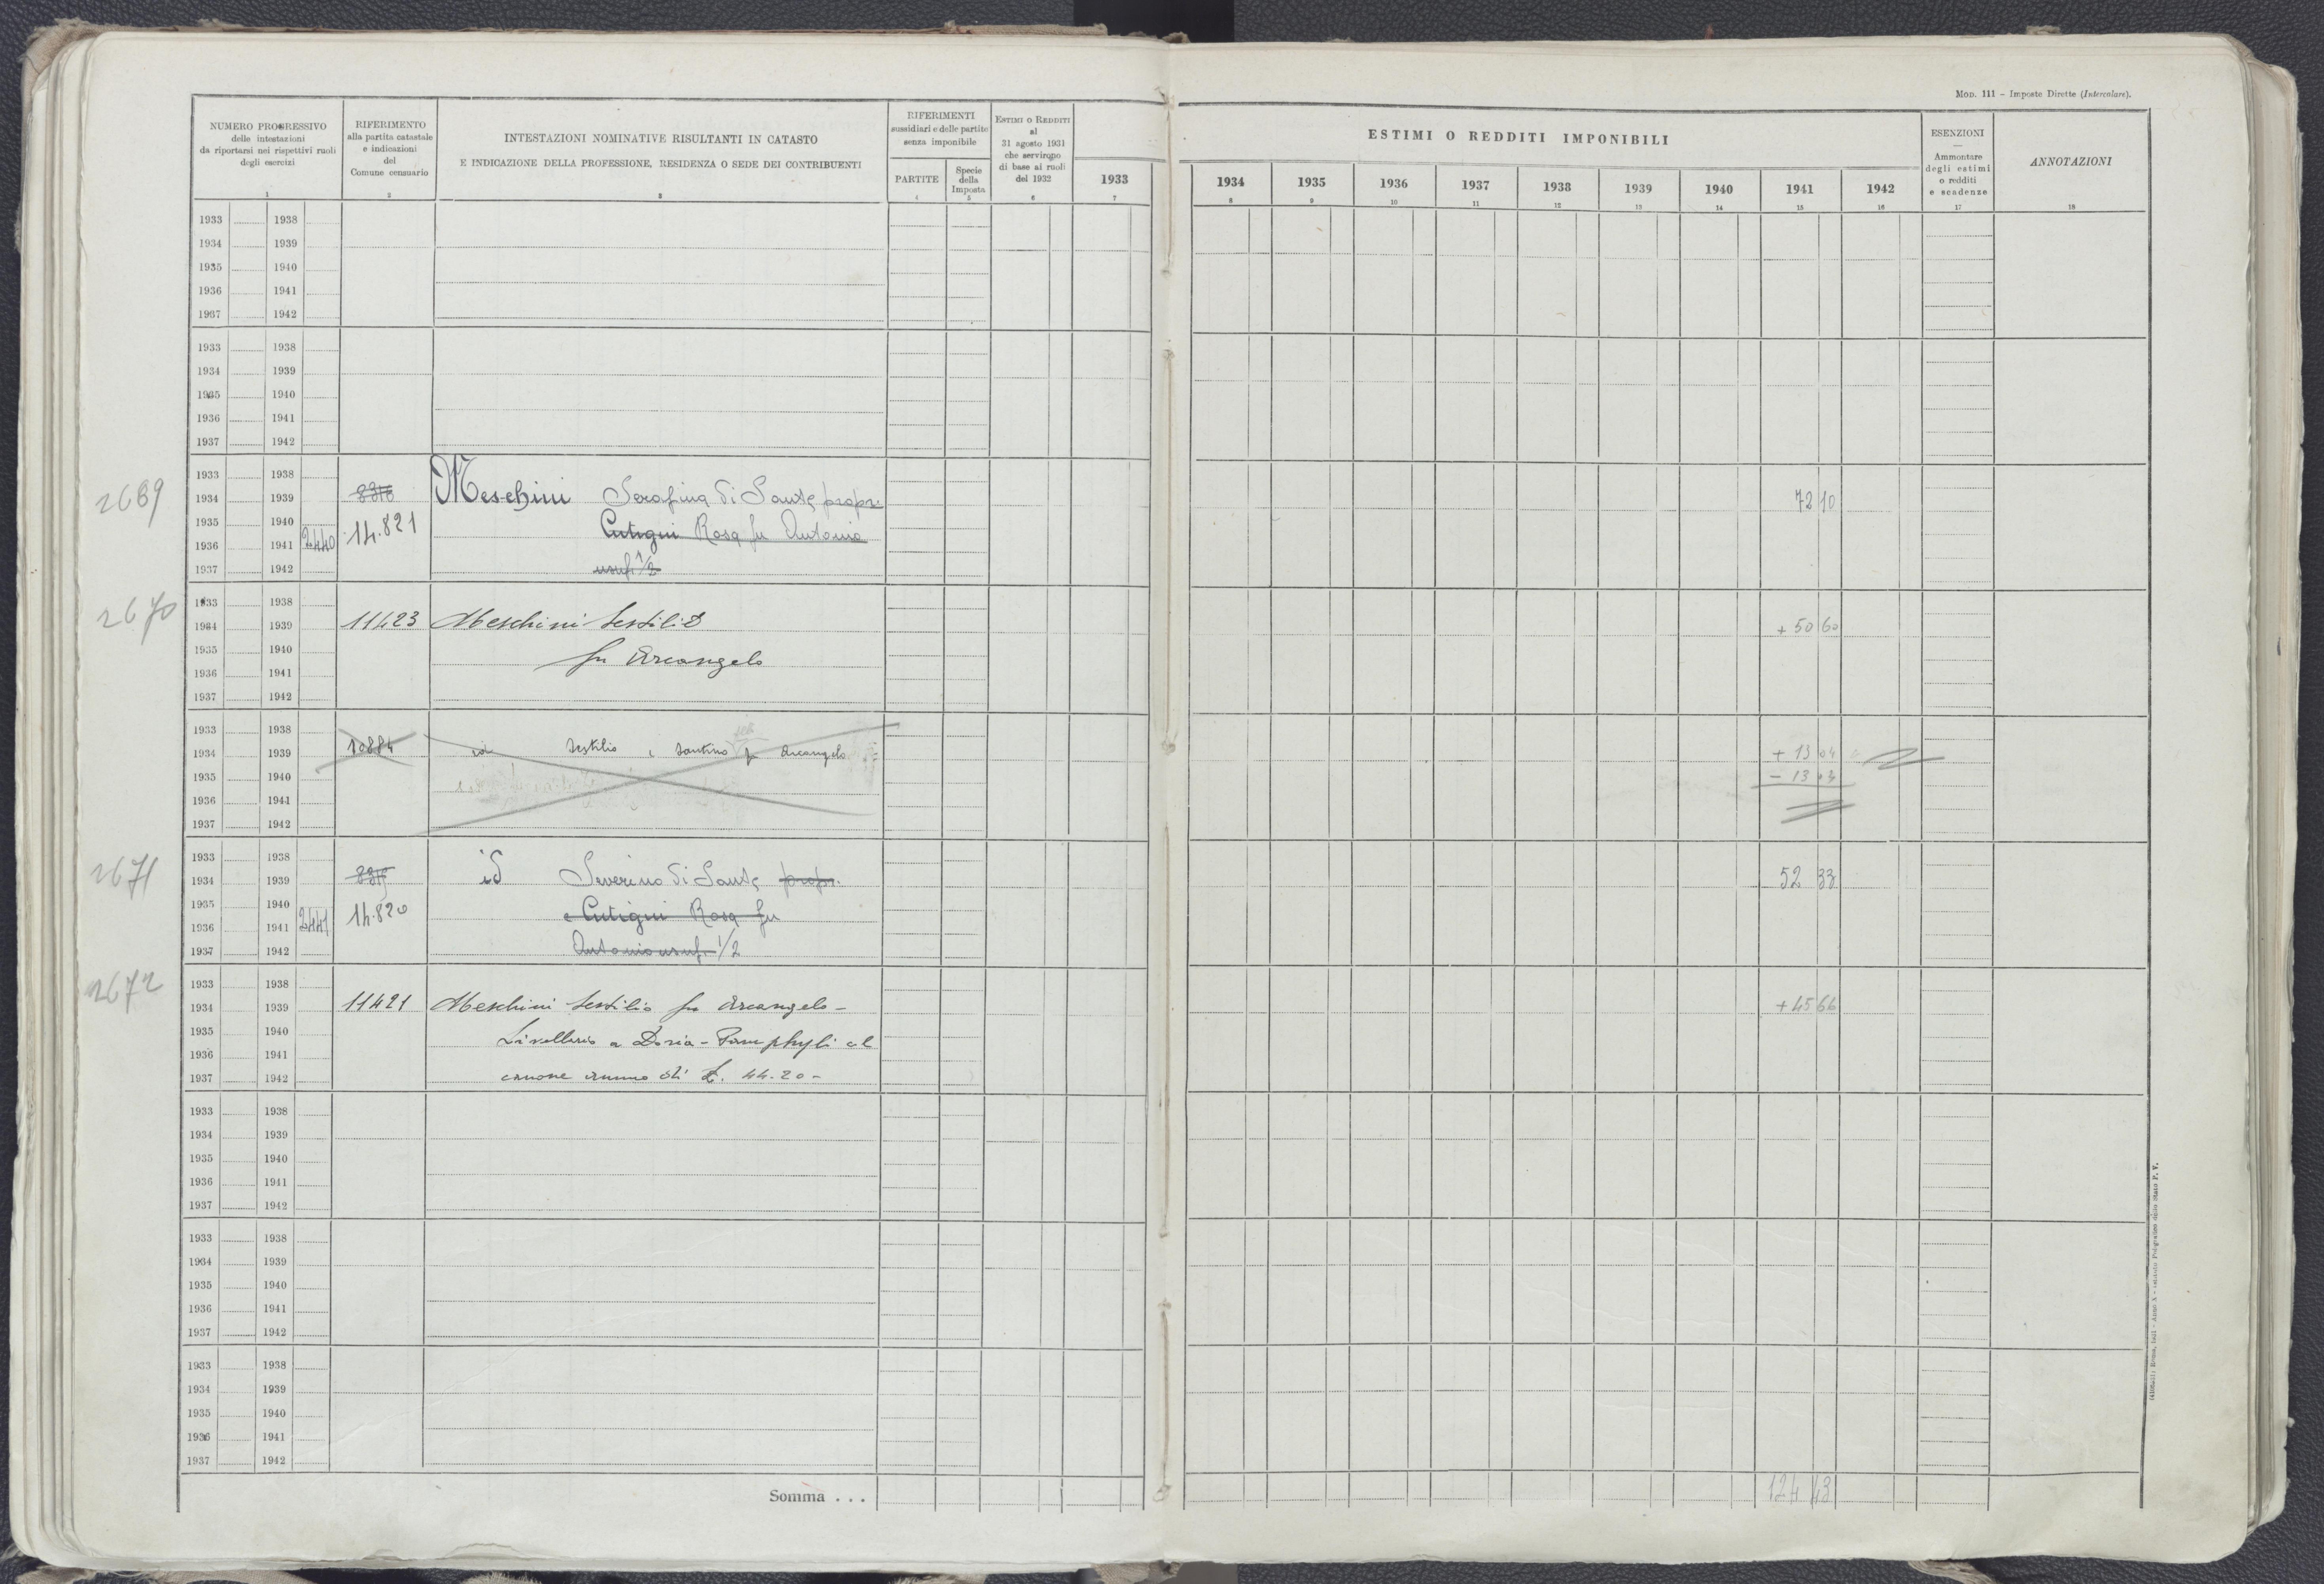 MOD. 111 – Imposte Dirette (Intercalare).
NUMERO PROGRESSIVO
delle intestazioni
da riportarsi nei rispettivi ruoli
degli esercizi
1
RIFERIMENTO
alla partita catastale
e indicazioni
del
Comune censuario
2
INTESTAZIONI NOMINATIVE RISULTANTI IN CATASTO
E INDICAZIONE DELLA PROFESSIONE, RESIDENZA O SEDE DEI CONTRIBUENTI
3
RIFERIMENTI
sussidiari e delle partite
senza imponibile
PARTITE
4
Specie
della
Imposta
5
ESTIMI O REDDITI
al
31 agosto 1931
che servirono
di base ai ruoli
del 1932
6
ESTIMI O REDDITI IMPONIBILI
1933 1934 1935 1936 1937 1938 1939 1940 1941 1942
7 8 9 10 11 12 13 14 15 16
ESENZIONI
—
Ammontare
degli estimi
o redditi
e scadenze
17
ANNOTAZIONI
18
1933 1938
1934 1939
1935 1940
1936 1941
1937 1942
1933 1938
1934 1939
1935 1940
1936 1941
1937 1942
1933 1938
2669 1934 1939 8316 Meschini Serafina di Sante propr. 72 10
1935 1940 14.821 Cutigni Rosa fu Antonio
1936 1941 2440
1937 1942 usuf. 1/2
1933 1938
2670 1934 1939 11423 Meschini Sestilio + 50 60
1935 1940 fu Arcangelo
1936 1941
1937 1942
1933 1938
1934 1939 10884 id Sestilio e Santino fu Arcangelo + 13 04
1935 1940 – 13 04
1936 1941
1937 1942
2671 1933 1938
1934 1939 8315 id Severino di Sante propr. 52 33
1935 1940 14.820 e Cutigni Rosa fu
1936 1941 2441
1937 1942 Antonio usuf. 1/2
2672 1933 1938
1934 1939 11421 Meschini Sestilio fu Arcangelo – + 45 66
1935 1940 Livellario a Doria-Pamphyli al
1936 1941
1937 1942 canone annuo di L. 44.20 –
1933 1938
1934 1939
1935 1940
1936 1941
1937 1942
1933 1938
1934 1939
1935 1940
1936 1941
1937 1942
1933 1938
1934 1939
1935 1940
1936 1941
1937 1942
Somma . . . 124 43
Roma, 1931 - Anno X - Istituto Poligrafico dello Stato P. V.